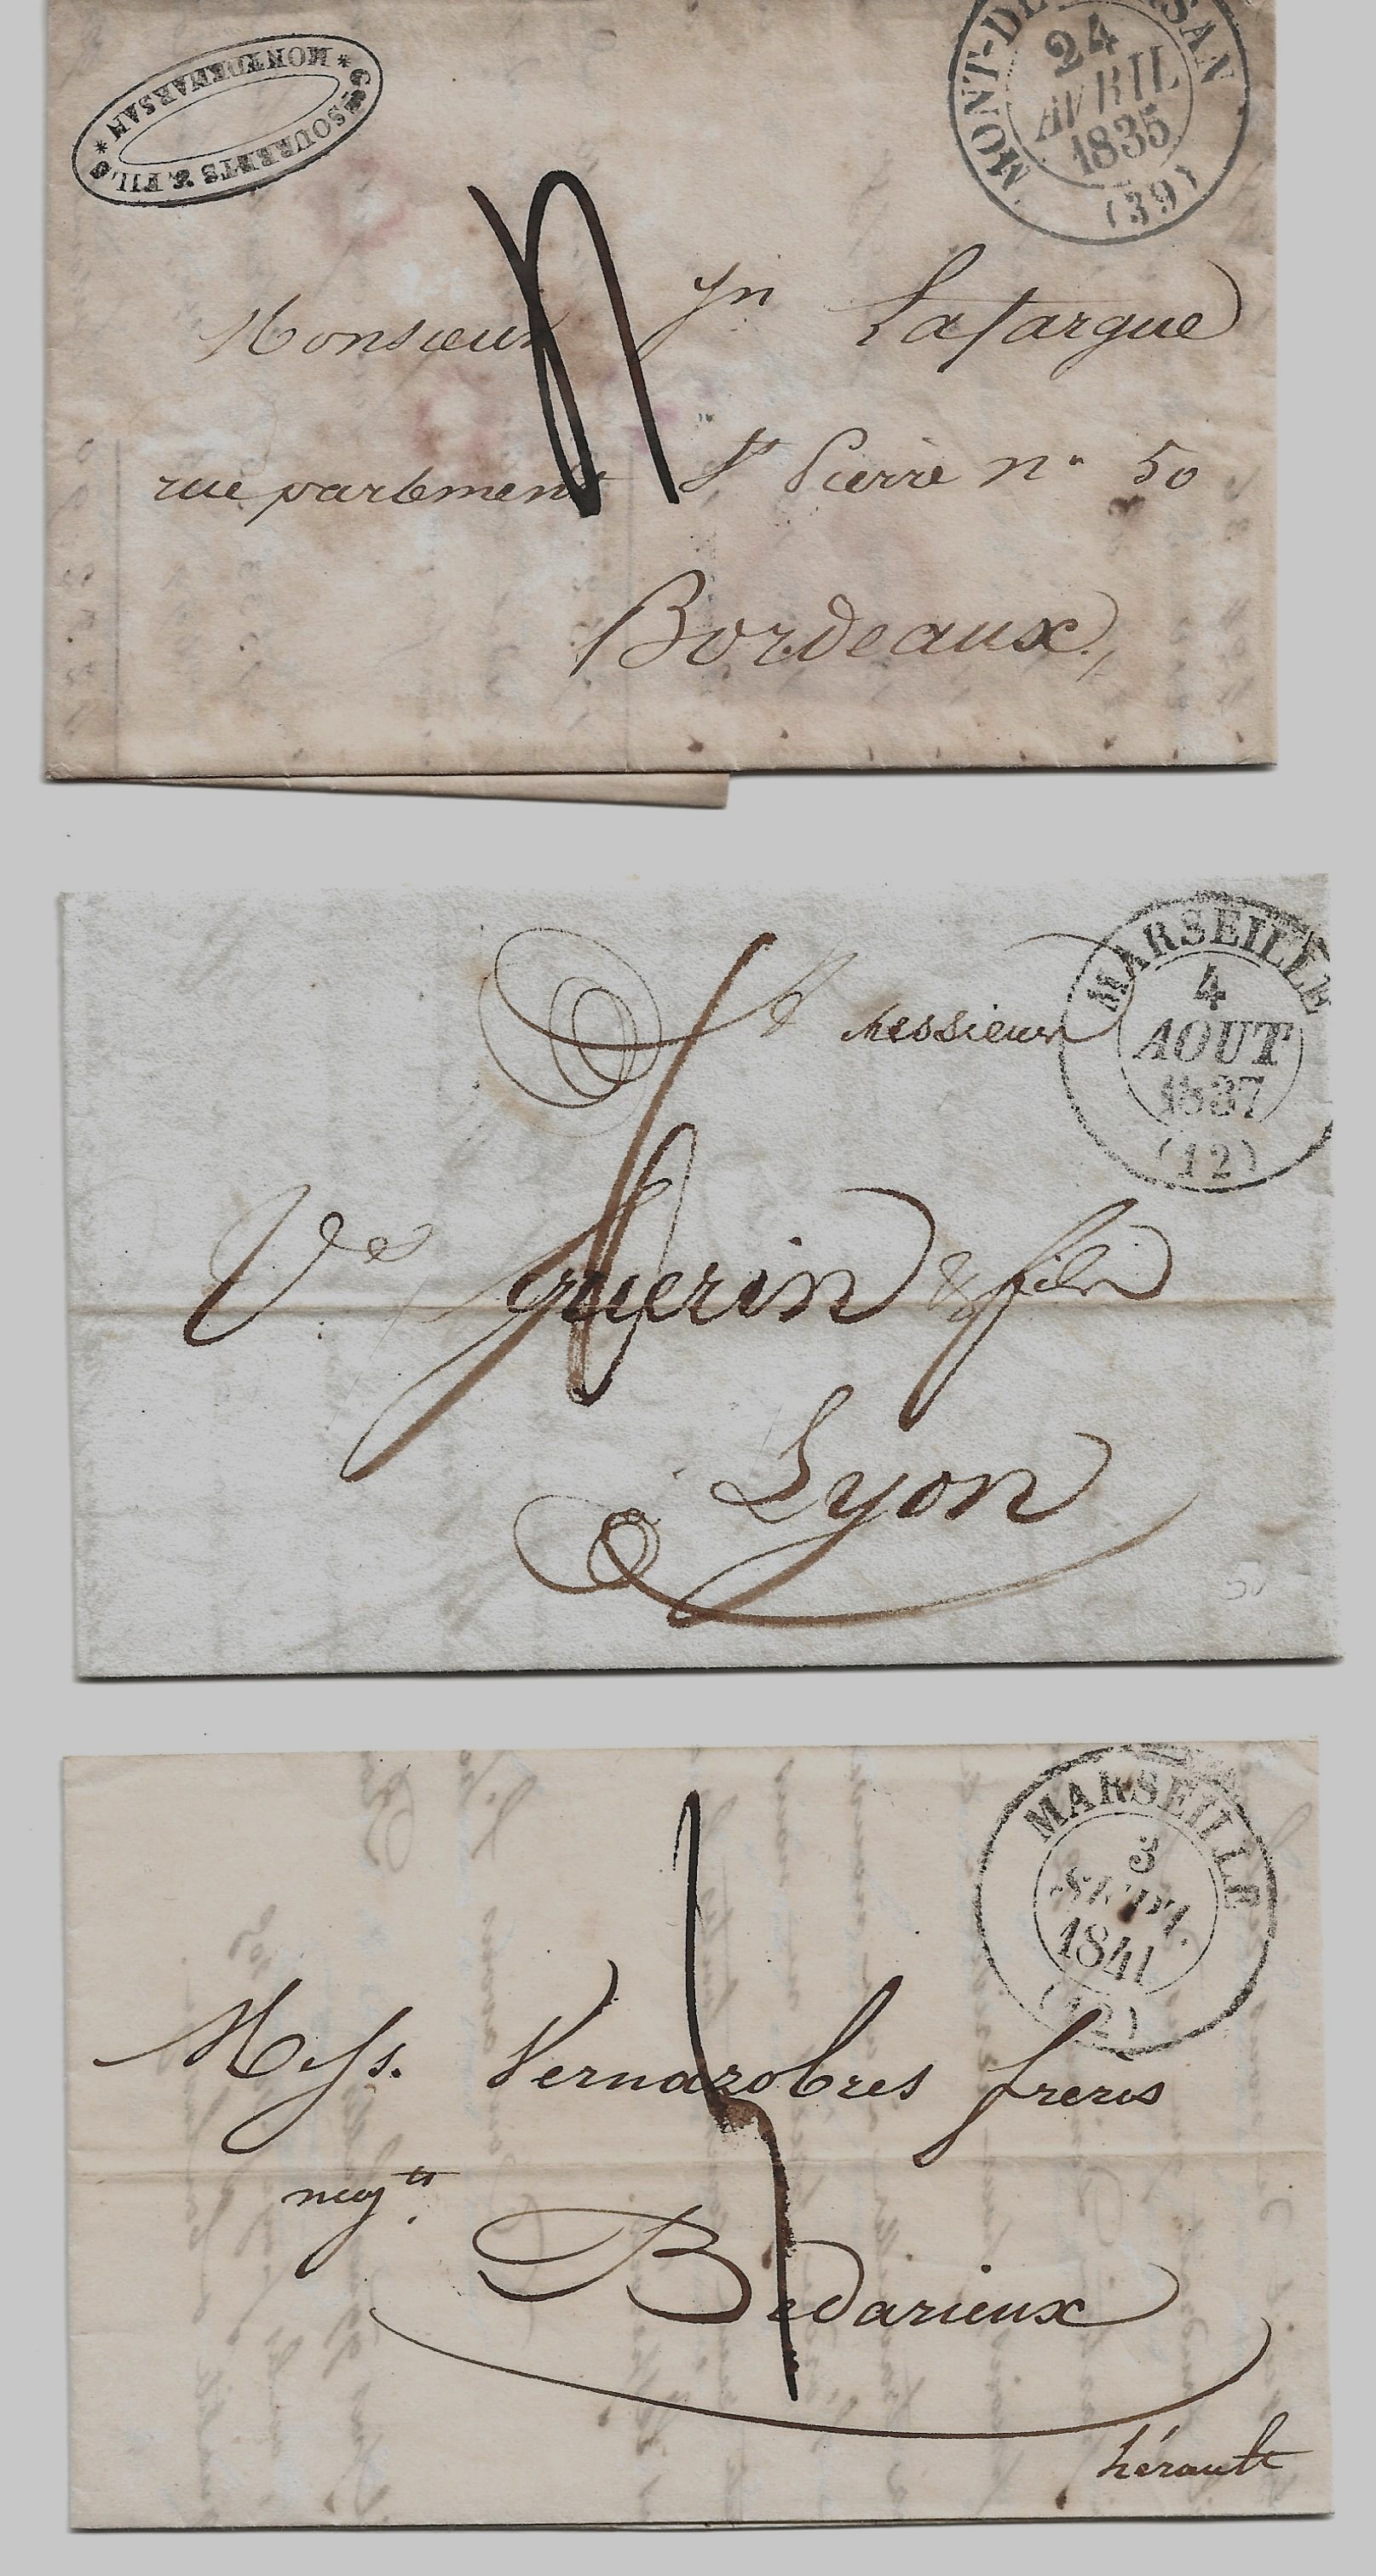 * MONTDEMARSAN *
SOURBETS & FILS
MONT-DE-MARSAN
24
AVRIL
1835
(39)
Monsieur Jn Lafargue
rue parlement St Pierre n° 50
Bordeaux
MARSEILLE
4
AOUT
1837
(12)
Messieurs
Ve guerin & fils
Lyon
MARSEILLE
3
SEPT.
1841
(12)
Mess. Vernazobres freres
negts.
Bedarieux
hérault